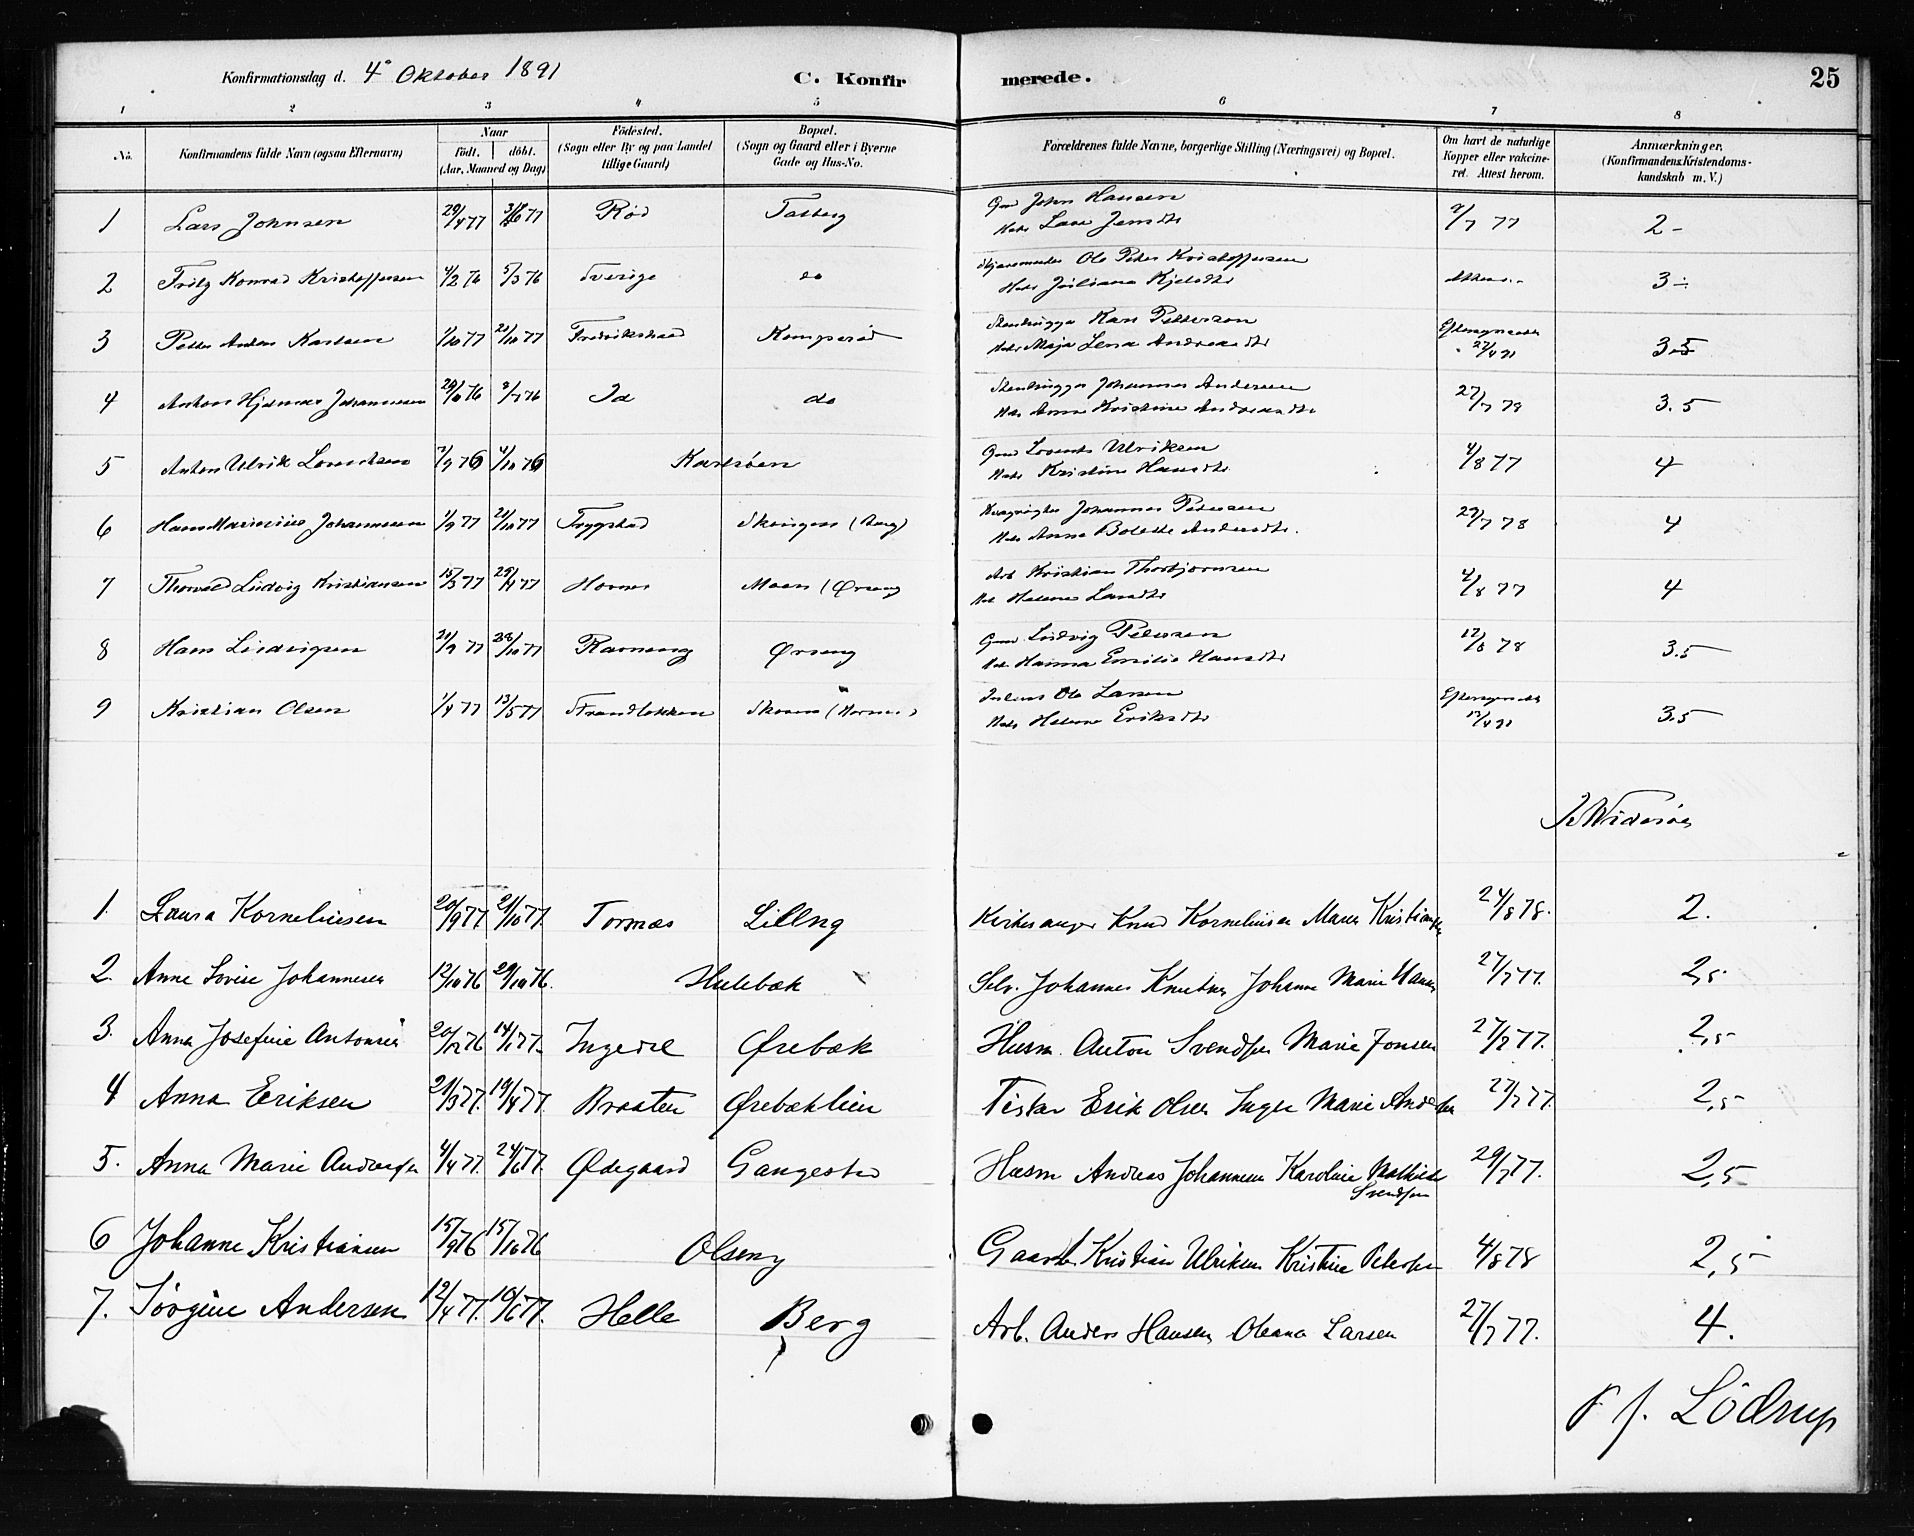 Konfirmationsdag d. 4de Oktober 1891
C. Konfirmerede.
25
1 2 3 4 5 6 7 8
No.
Konfirmandens fulde Navn (ogsaa Efternavn)
Naar
födt. döbt.
(Aar, Maaned og Dag)
Födested.
(Sogn eller By og paa Landet
tillige Gaard)
Bopæl.
(Sogn og Gaard eller i Byerne
Gade og Hus-No.
Forældrenes fulde Navne, borgerlige Stilling (Næringsvei) og Bopæl.
Om havt de naturlige
Kopper eller vakcine-
ret. Attest herom.
Anmærkninger.
(Konfirmandens Kristendoms-
kundskab m. V.)
1 Lars Johnsen 29/4 77 Rød Torberg Gmd John Hansen
Lene Jensdtr 77 2-
2 Fritz Konrad Kristoffersen 4/2 76 5/3 76 Sverige do Ole Peter Kristoffersen
Juliana Kjeldtr 3-
3 Petter Anders Karlsen 1/10 77 21/10 77 Fredrikshald Kongerød Stenhugger Karl Petterson
Maja Lena Andreasdtr 3.5
4 Anton Hjalmar Johannesen Id do Stenhugger Johannes Andersen
Anna Kristine Andreasdtr 27/7 78 3.5
5 Anton Ulrik Lorentsen 76 4/10 76 Karlsöen Gmd Lorents Ulriksen
Kristine Hansdtr 4/8 77 4
6 Hans Marinius Johannesen 1/9 77 21/10 77 Trygstad (Berg) Johannes Petersen
Anna Bolette Andersdtr. 27/7 78 4
7 Thorvald Ludvig Kristiansen 15/3 77 29/4 77 Hornes Moen (Ørseng Arb Kristian Thorbjørnsen
Helene Larsdtr 4/8 77 4
8 Hans Ludvigsen 77 28/10 77 Ravneng Ørseng Gmd Ludvig Petersen
Hanna Emilie Hansdtr 12/8 78 3.5
9 Kristian Olsen 1/4 77 13/5 77 Strandløkken Skoven (Hornes) Ole Larsen
Helene Eriksdtr 3.5
Widerøe
1. Laura Korneliusen 20/9 77. 21/10 77. Tormæs Lilleng Kirkesanger Knud Korneliusen Maren Kristiansen 24/8 78. 2.
2. Anne Lovise Johannesen 12/10 76 29/10 76. Hulebæk Selv. Johannes Knutsen Johanne Marie Hansen 27/7 77. 2,5
3. Anna Josefine Antonsen 20/12 76 14/1 77. Ingedel Ørebæk Husm. Anton Svendsen Marie Jonsen 27/7 77. 2,5
4 Anna Eriksen 21/3 77. 19/4 77. Braaten Ørebæklien Fisker Erik Olsen Inger Marie Andersen 27/7 77. 2,5
5. Anna Marie Andreasen 4/4 77. 24/6 77. Ødegaard Gangestad Husm Andreas Johannesen Karoline Mathilde
Svendsen 29/7 77. 2,5
6 Johanne Kristiansen 15/9 76 15/10 76 Olseng Gaardb. Kristian Ulriksen Kristine Petersen 4/8 78 2,5
7. Jørgine Andersen 12/4 77. 10/6 77. Helle Berg Arb. Anders Hansen Oleana Larsen 27/7 77. 4.
P J. Lödrup